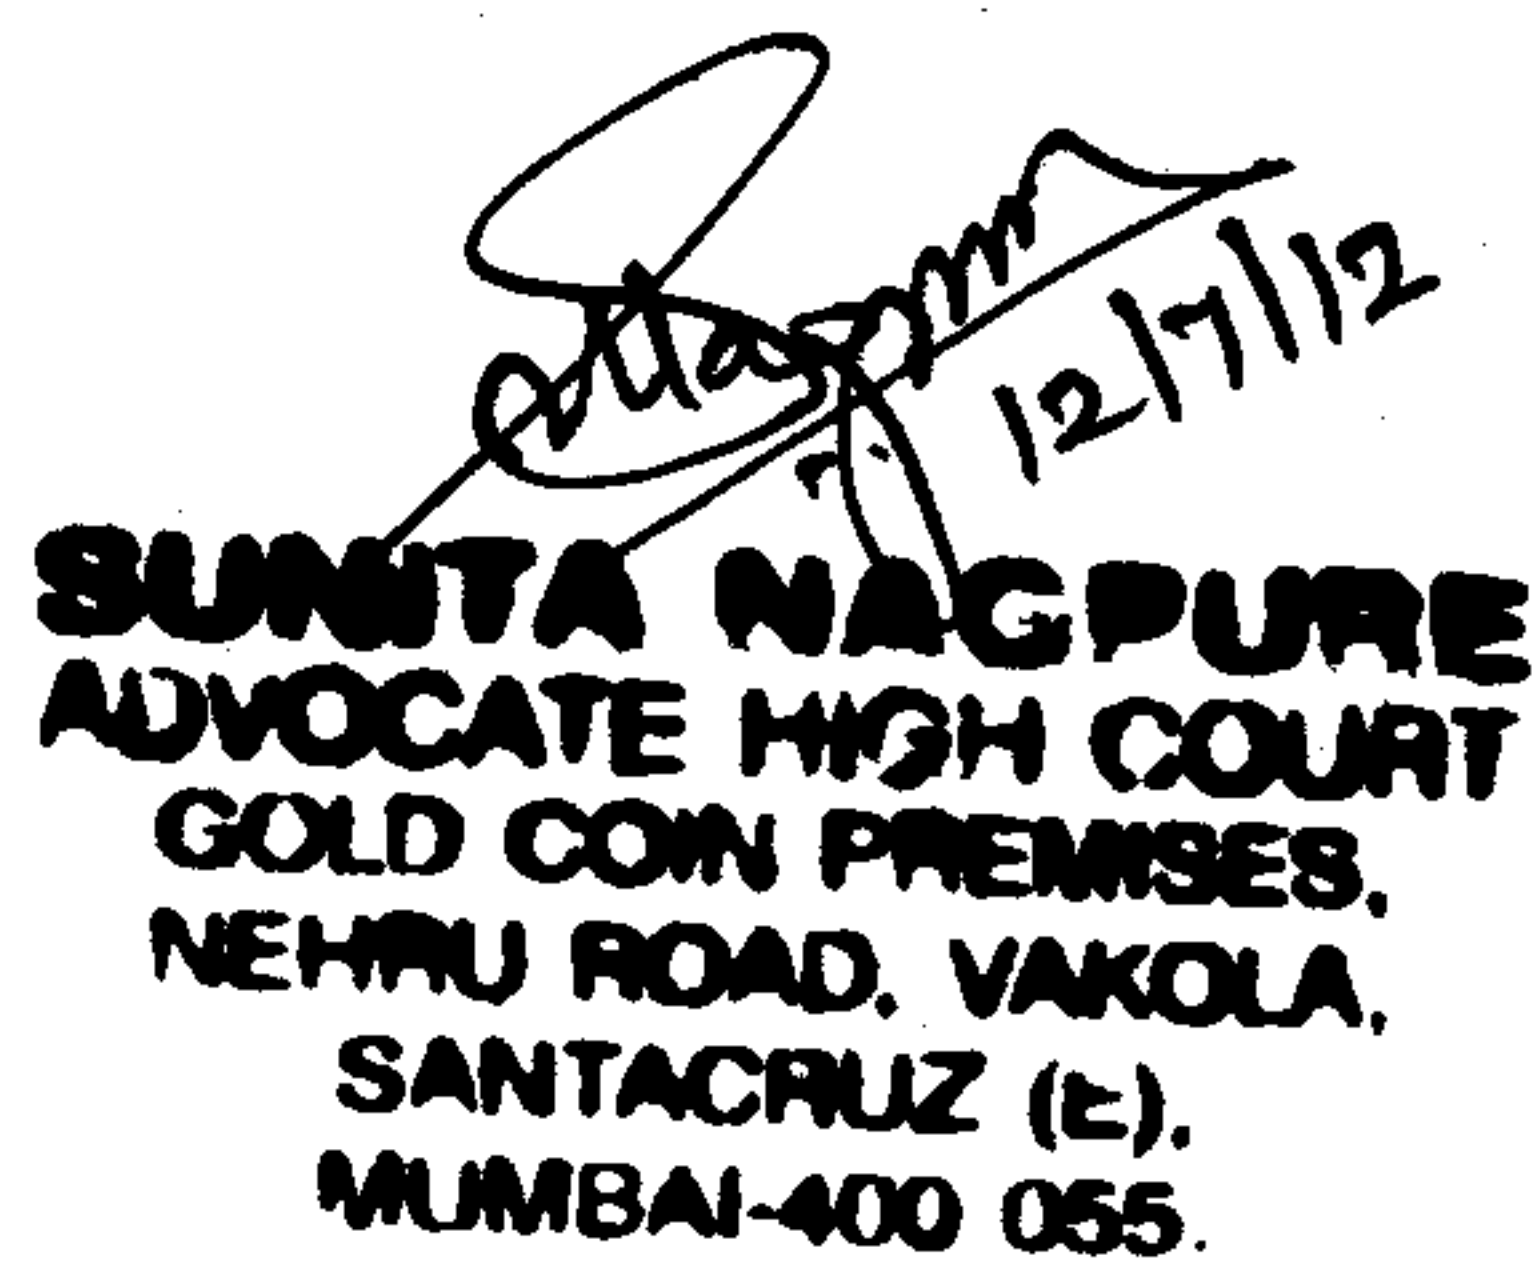 12/7/12
SUNITA NAGPURE
ADVOCATE HIGH COURT
GOLD COIN PREMISES,
NEHRU ROAD, VAKOLA,
SANTACRUZ (E),
MUMBAI-400 055.